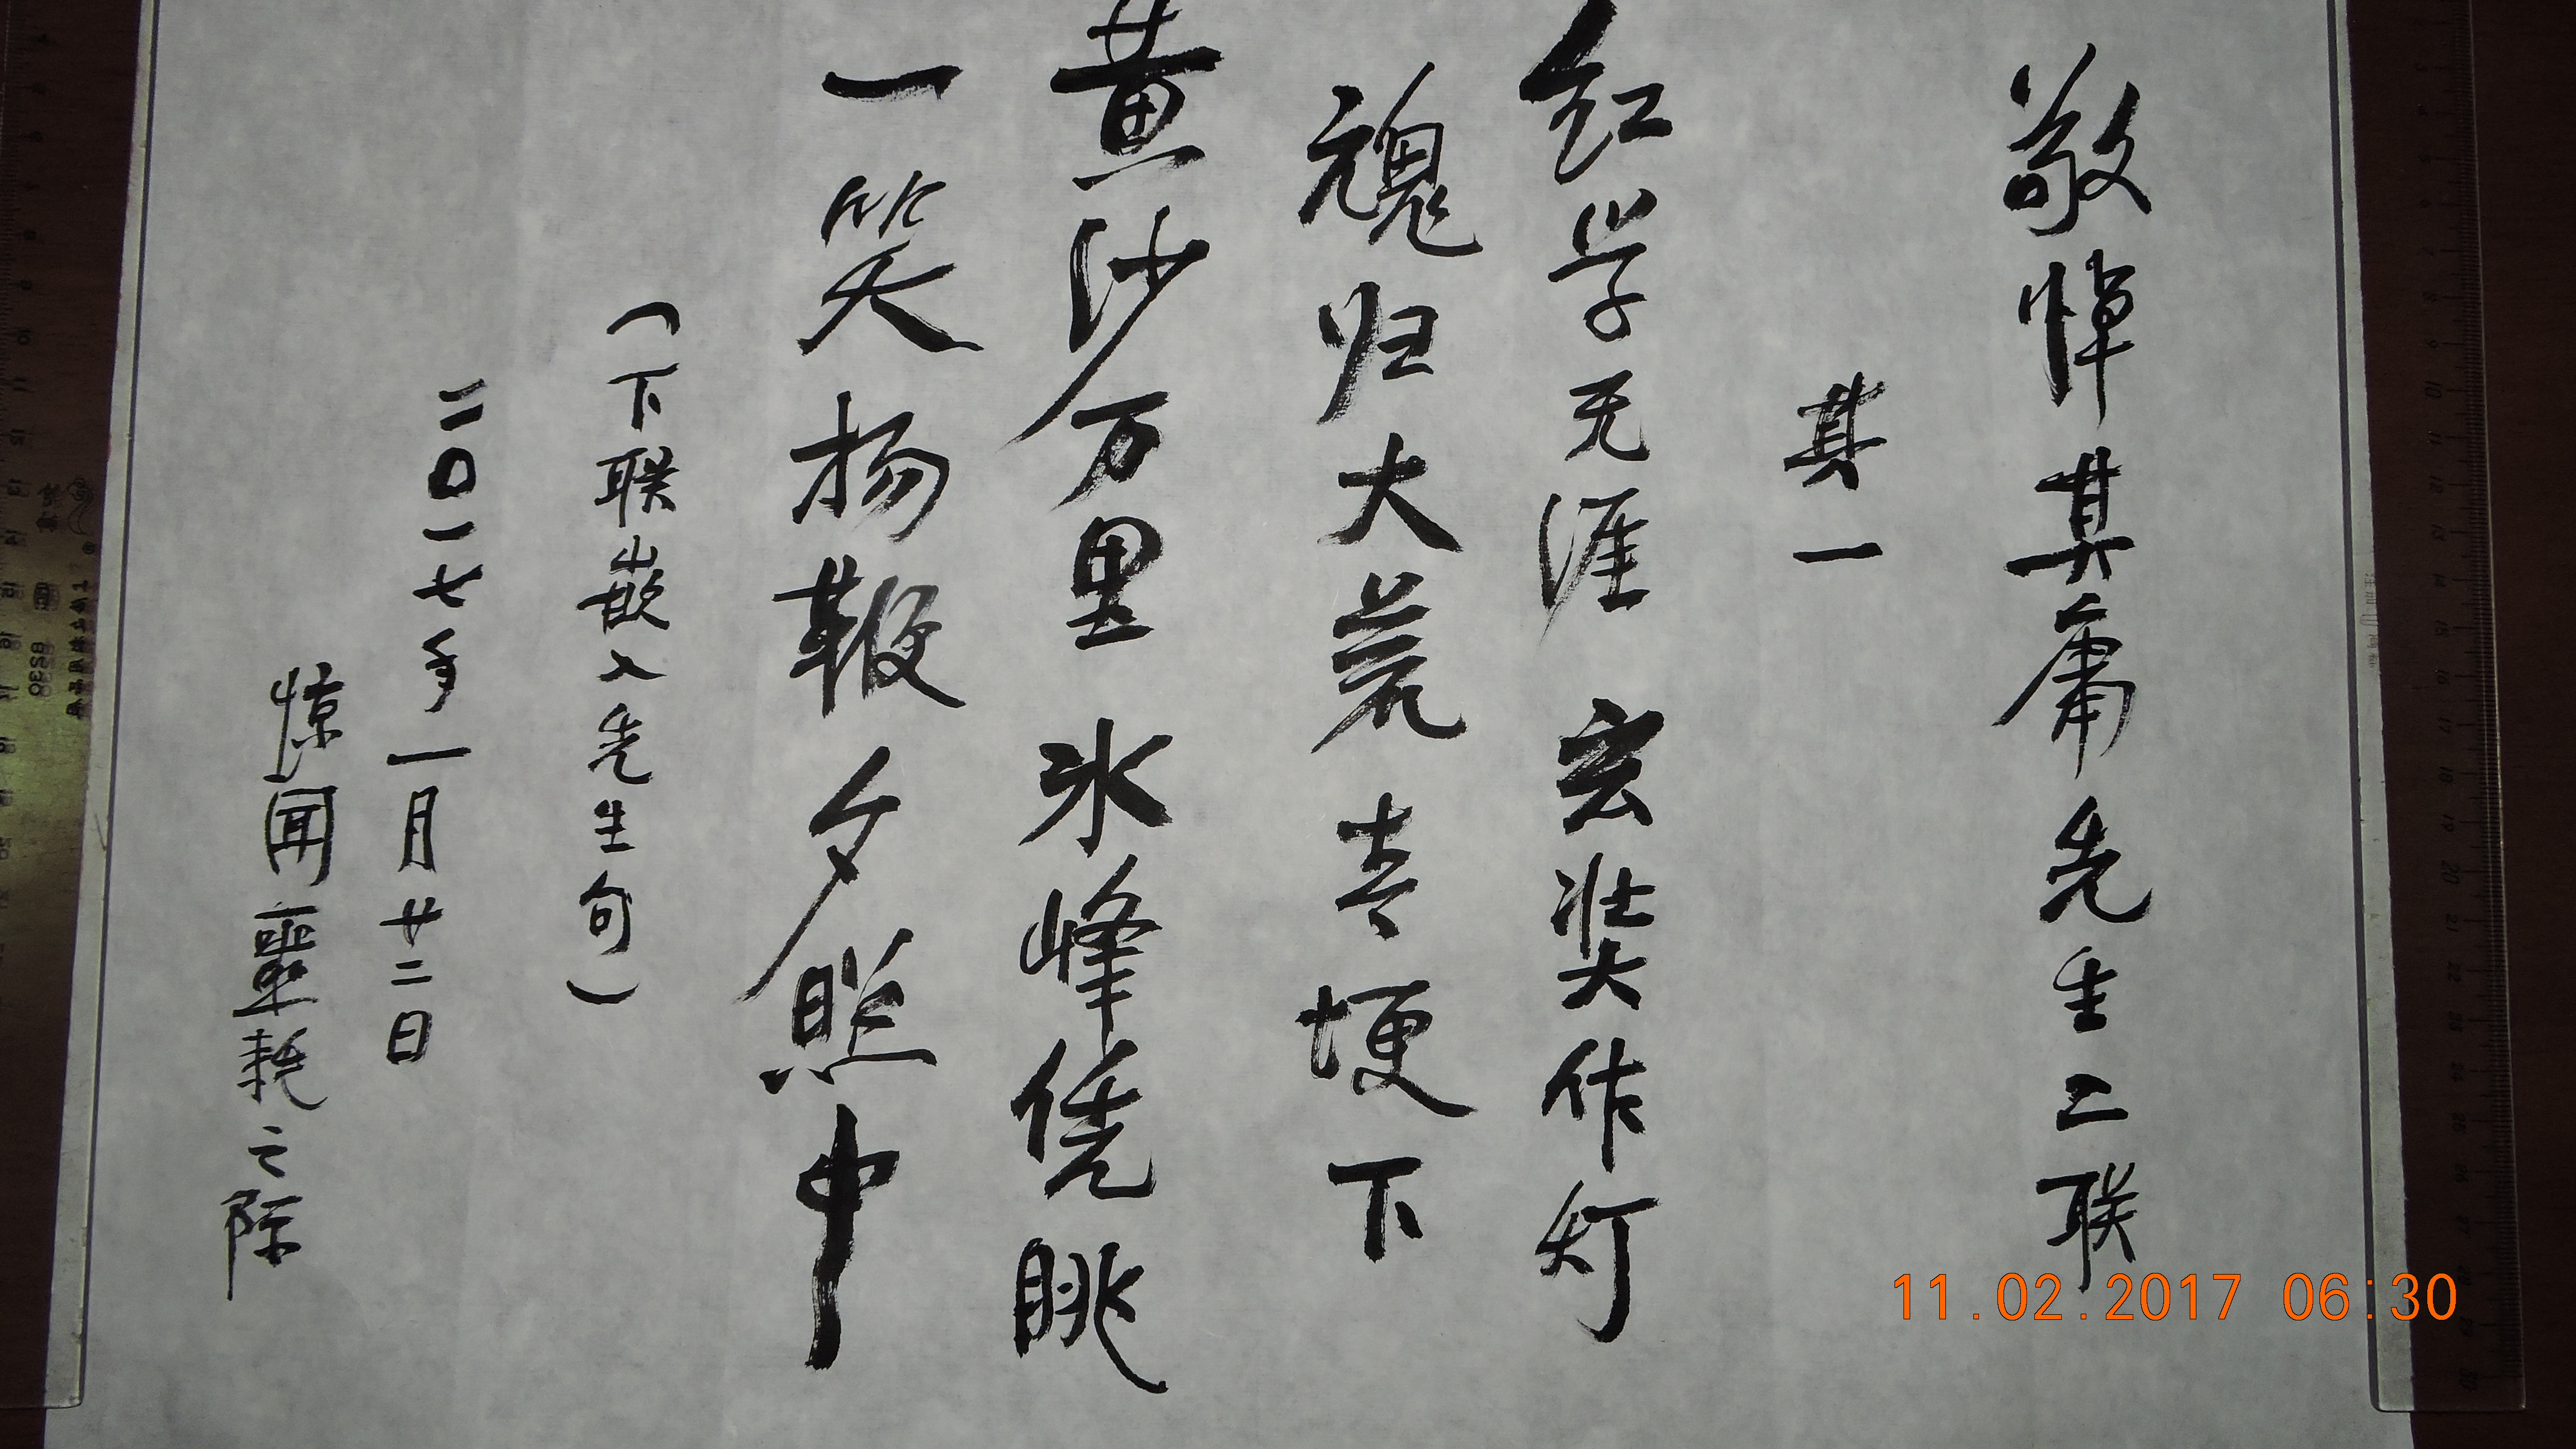 敬悼其庸先生二联
其一
红学无涯玄奘作灯
魂归大荒青埂下
黄沙万里冰峰凭眺
一笑扬鞭夕照中
（下联嵌入先生句）
二〇一七年一月廿二日
惊闻噩耗之际
11.02.2017 06:30